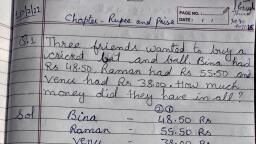 Chapter - Rupee and paise
PAGE NO.
DATE
Q.1 Three friends wanted to buy a
cricket bat and ball. Bina had
Rs 48.50 Raman had Rs 55.50 and
Venu had Rs 38.00. How much
money did they have in all?
Sol Bina - 48.50 Rs
Raman - 55.50 Rs
Venu - 38.00 Rs